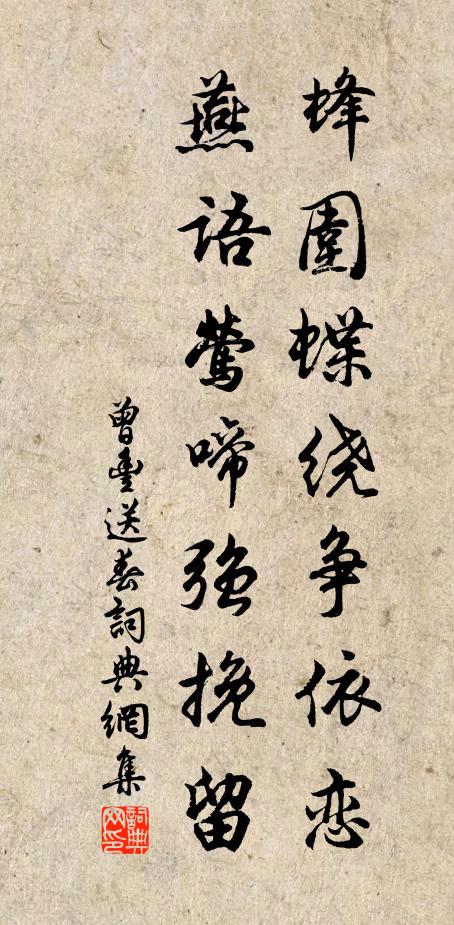 蜂圍蝶绕争依恋
燕語鶯啼强挽留
曾豐送春詞典網集
詞典网印